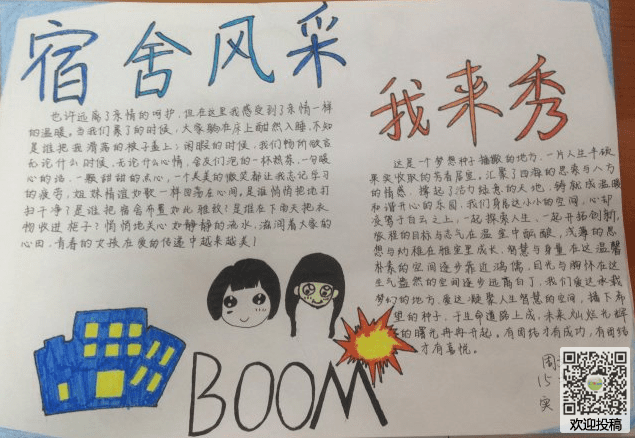 宿舍风采
我来秀
也许远离了亲情的呵护,但在这里我感受到了亲情一样
的温暖。当我们累了的时候,大家躺在床上酣然入睡,不知
是谁把我滑落的被子盖上;闲暇的时候,我们畅所欲言
无论什么时候,无论什么心情,舍友们泡的一杯热茶,一句暖
心的话,一颗甜甜的点心,一个美美的微笑都让我忘记学习
的疲劳,姐妹情谊如歌一样回荡在心间,是谁悄悄把地打
扫干净了?是谁把宿舍布置如此雅致?是谁在下雨天把衣
物收进柜子?悄悄地关心如静静的流水,滋润着大家的
心田,青春的女孩在爱的传递中越来越美!
这是个梦想种子播撒的地方,一片人生丰硕
果实收取的秀香居室,汇聚了四海的思索与八方
的情感,撑起了活力绿意的天地,铸就成温暖
和谐开心的乐园,我们身居这小小的空间,心却
交驾于白云之上,一起探索人生,一起开拓创新,
旅程的目标与志气在温室中酝酿,浅薄的思
想与幼稚在雅室里成长,智慧与身量在这温馨
朴素的空间逐步靠近鸿儒,目光与胸怀在这
生气盎然的空间逐步远离自了,我们爱这承载
梦幻的地方,爱这凝聚人生智慧的空间,播下希
望的种子,于生命道路上成,未来灿烂光辉
的曙光冉冉升起。有团结才有成功,有团结
才有喜悦。
周
15
实
BOOM
欢迎投稿